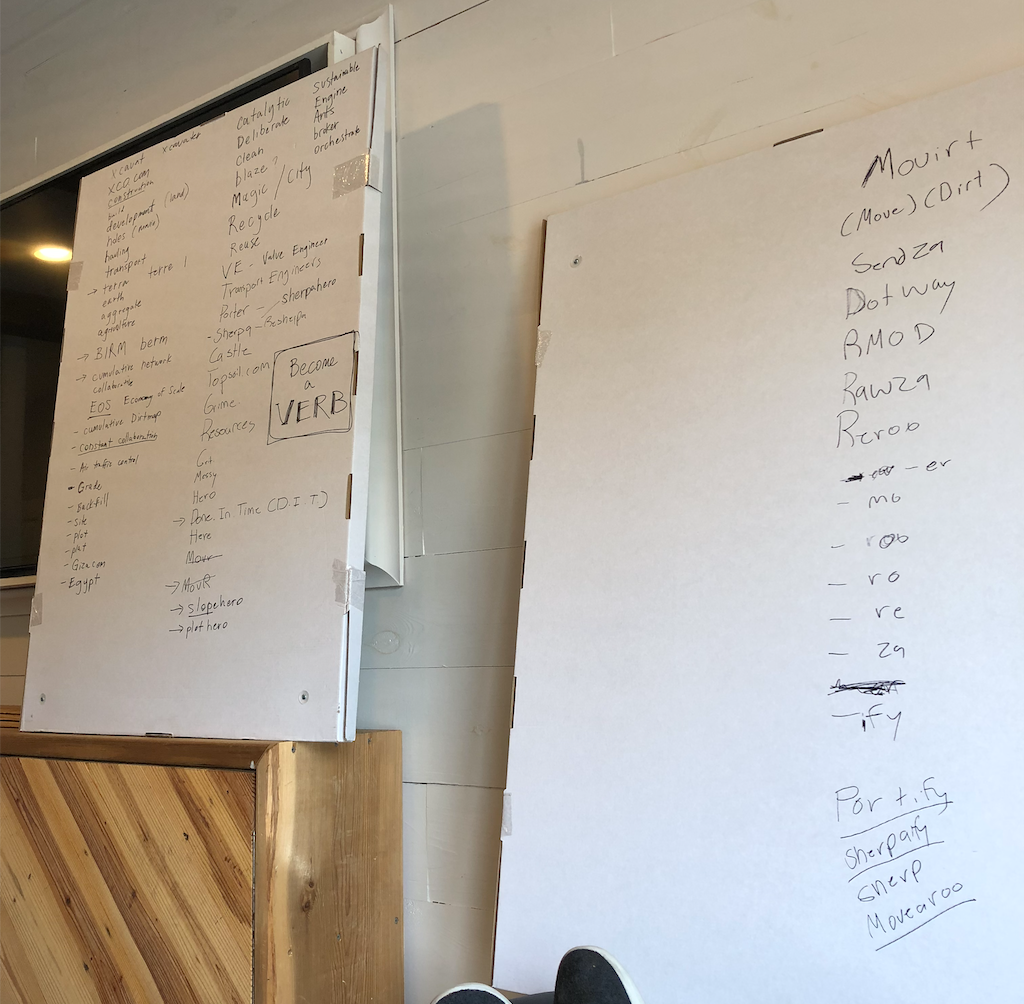 xcavator
XCO.com
construction
build
development (land)
holes
hauling
transport
→ terra terra 1
earth
aggregate
agriculture
→ BIRM berm
→ cumulative network
collaborative
EOS Economy of Scale
- cumulative Dirtmap
- constant collaboration
- Air traffic control
- Grade
- Backfill
- site
- plot
- plat
- Giza.com
- Egypt
catalytic
Deliberate
Clean
blaze ?
Magic / City
Recycle
Reuse
VE - Value Engineer
Transport Engineers
Porter - sherpahero
- Sherpa -
Castle
Topsoil.com
Grime
Resources
Grit
Messy
Hero
→ Done. In. Time (D.I.T)
Here
→ MovR
→ slopehero
→ plothero
sustainable
Engine
Ants
broker
orchestrate
Become
a
VERB
Movirt
(Move) (Dirt)
Sendza
Dotway
RMOD
Rawza
Rerob
- er
- mo
- rob
- ro
- re
- za
- ify
Portify
sherpaify
sherp
Movearoo